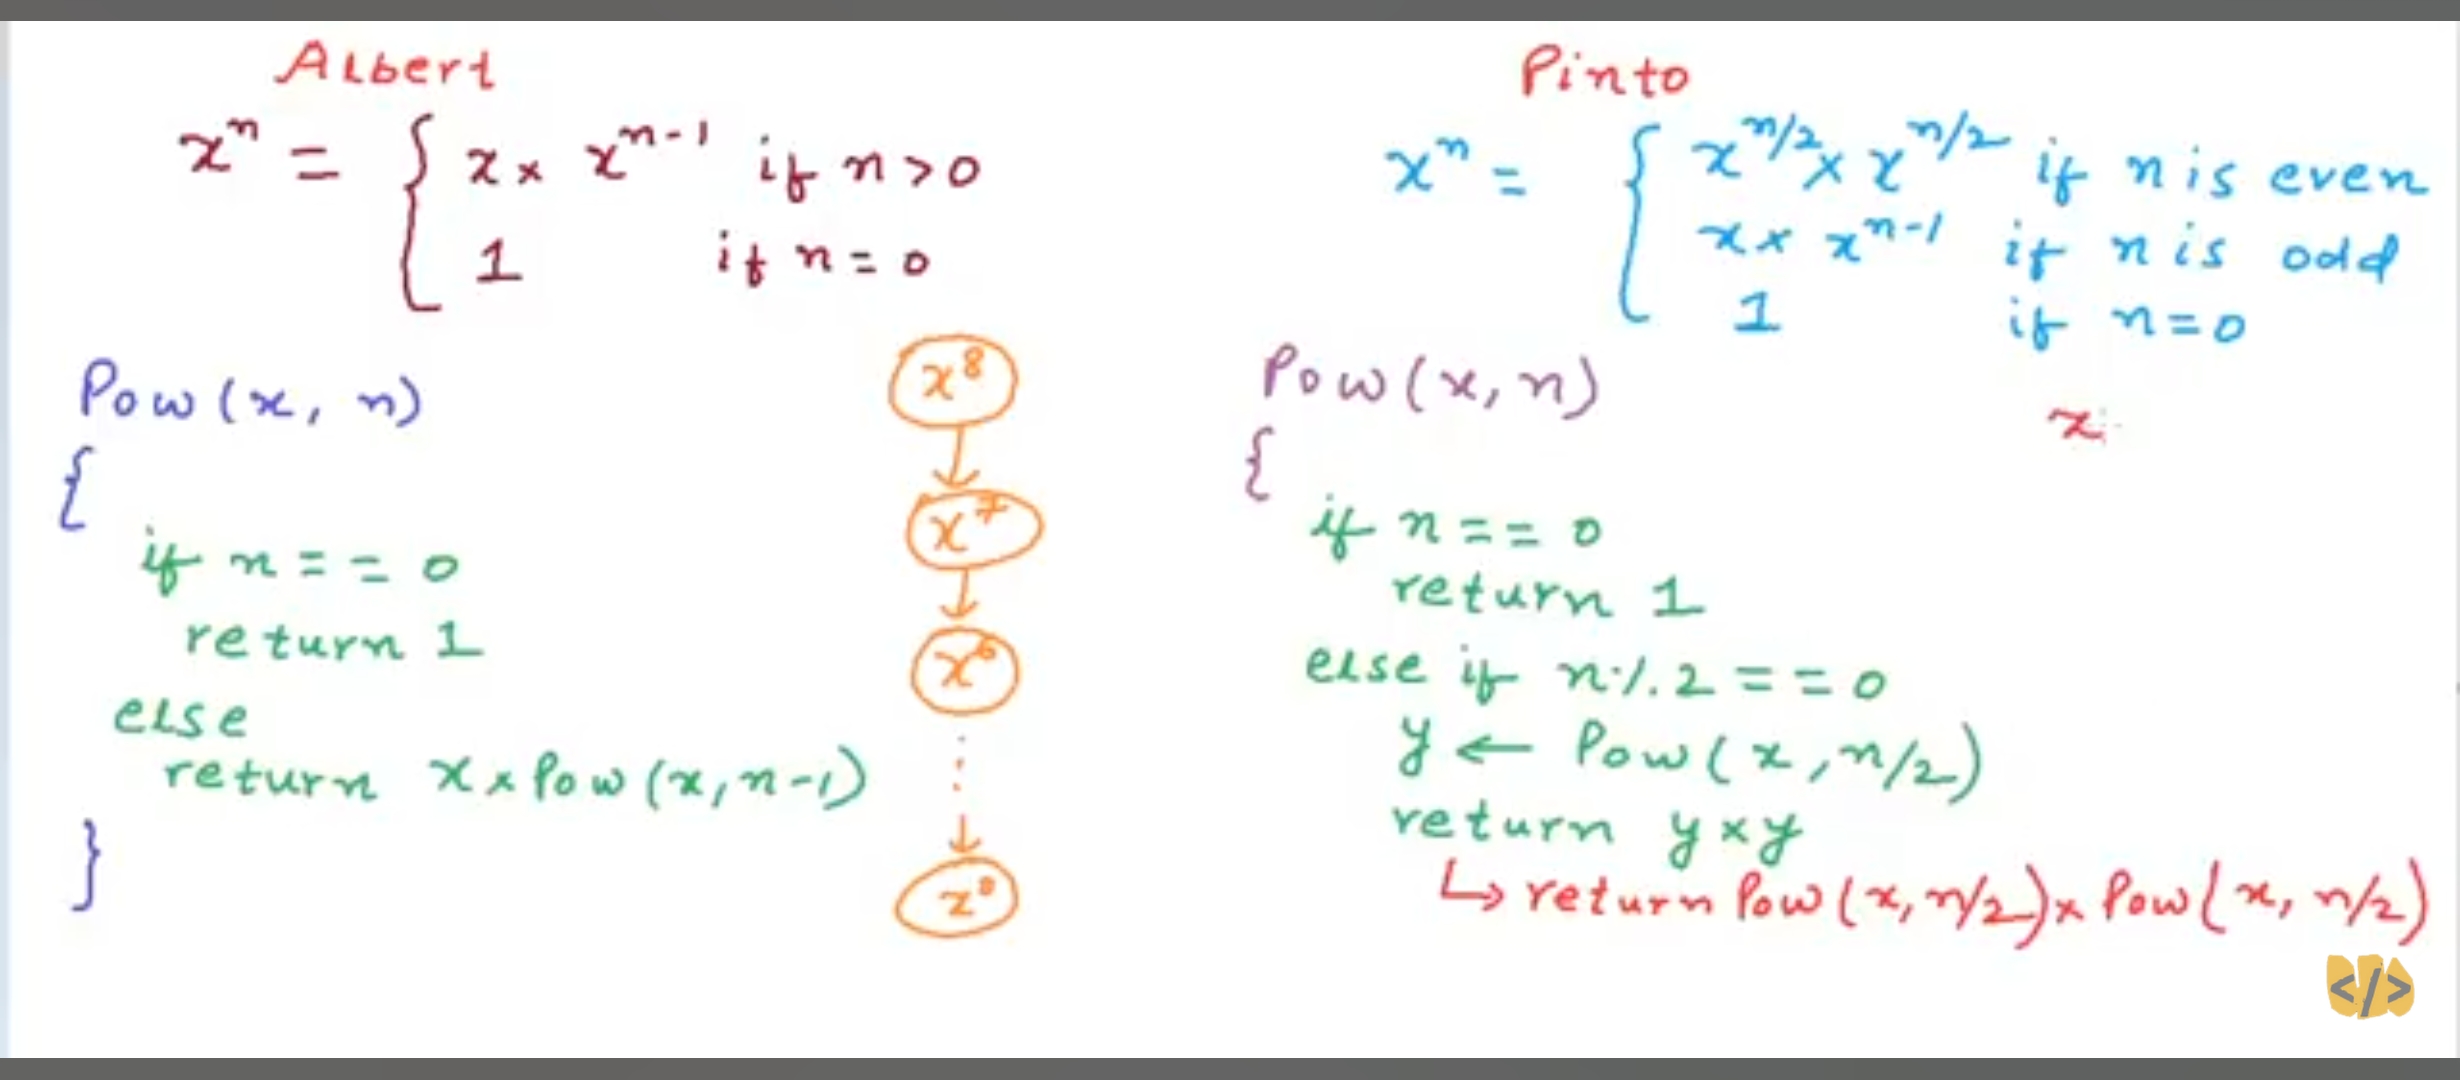 Albert
xⁿ = { x × xⁿ⁻¹ if n > 0
1 if n = 0
Pow(x, n)
{
if n == 0
return 1
else
return x × Pow(x, n-1)
}
x⁸
x⁷
x⁶
x⁰
Pinto
xⁿ = { x^n/2 × x^n/2 if n is even
x × xⁿ⁻¹ if n is odd
1 if n = 0
Pow(x, n)
x
{
if n == 0
return 1
else if n % 2 == 0
y ← Pow(x, n/2)
return y × y
↳ return Pow(x, n/2) × Pow(x, n/2)
</>